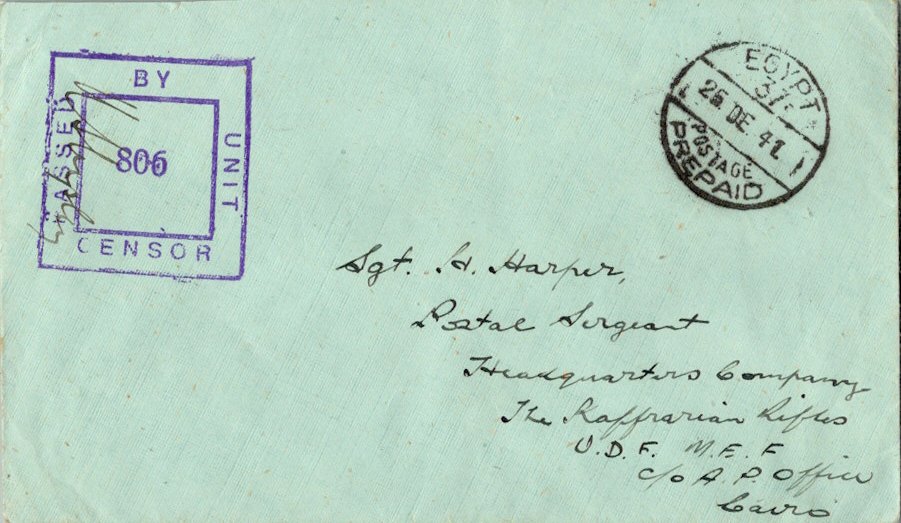 PASSED
BY
UNIT
CENSOR
806
EGYPT
37
25 DE 41
POSTAGE
PREPAID
Sgt. H. Harper,
Postal Sergeant
Headquarters Company
The Kaffrarian Rifles
U.D.F. M.E.F
c/o A.P. Office
Cairo